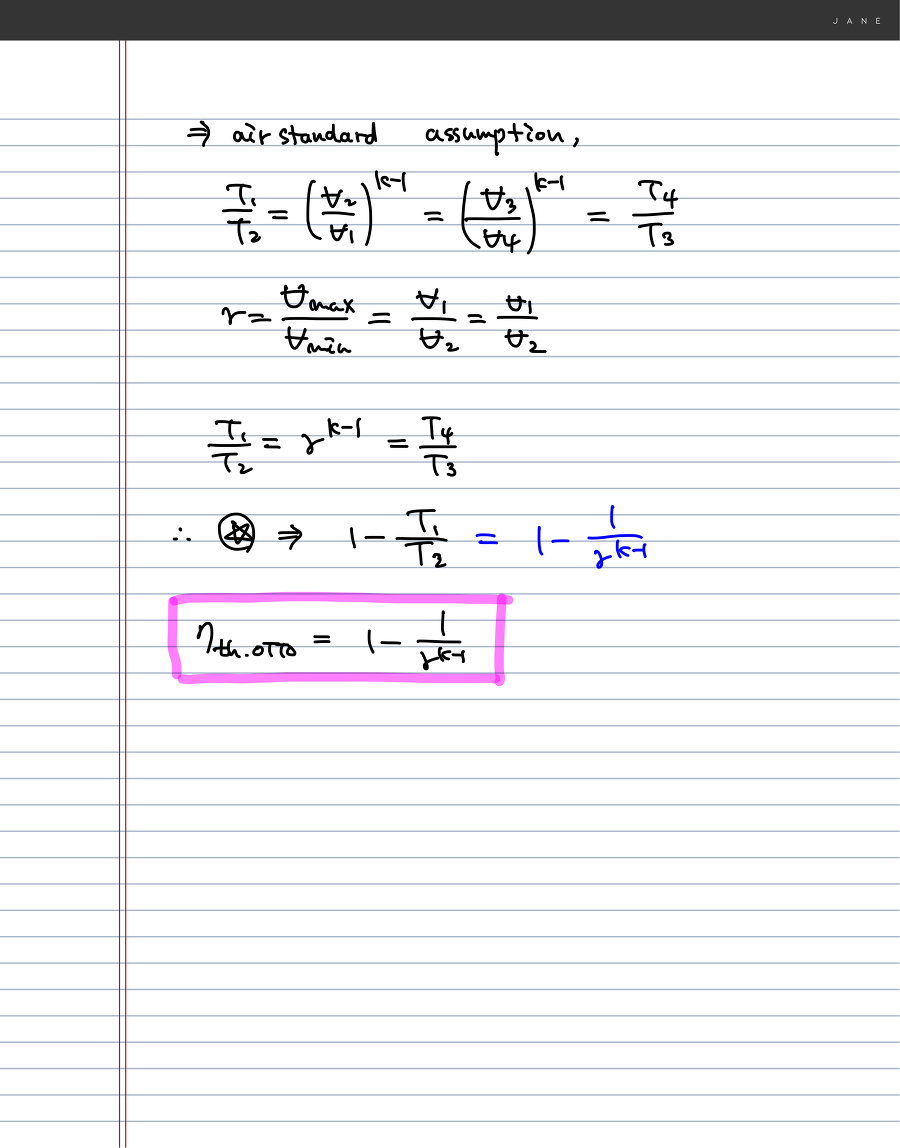 JANE
⇒ air standard assumption,
T₁/T₂ = (V₂/V₁)^(k-1) = (V₃/V₄)^(k-1) = T₄/T₃
r = Vmax/Vmin = V₁/V₂ = v₁/v₂
T₁/T₂ = r^(k-1) = T₄/T₃
∴ ⍟ ⇒ 1 - T₁/T₂ = 1 - 1/r^(k-1)
ηth.OTTO = 1 - 1/r^(k-1)